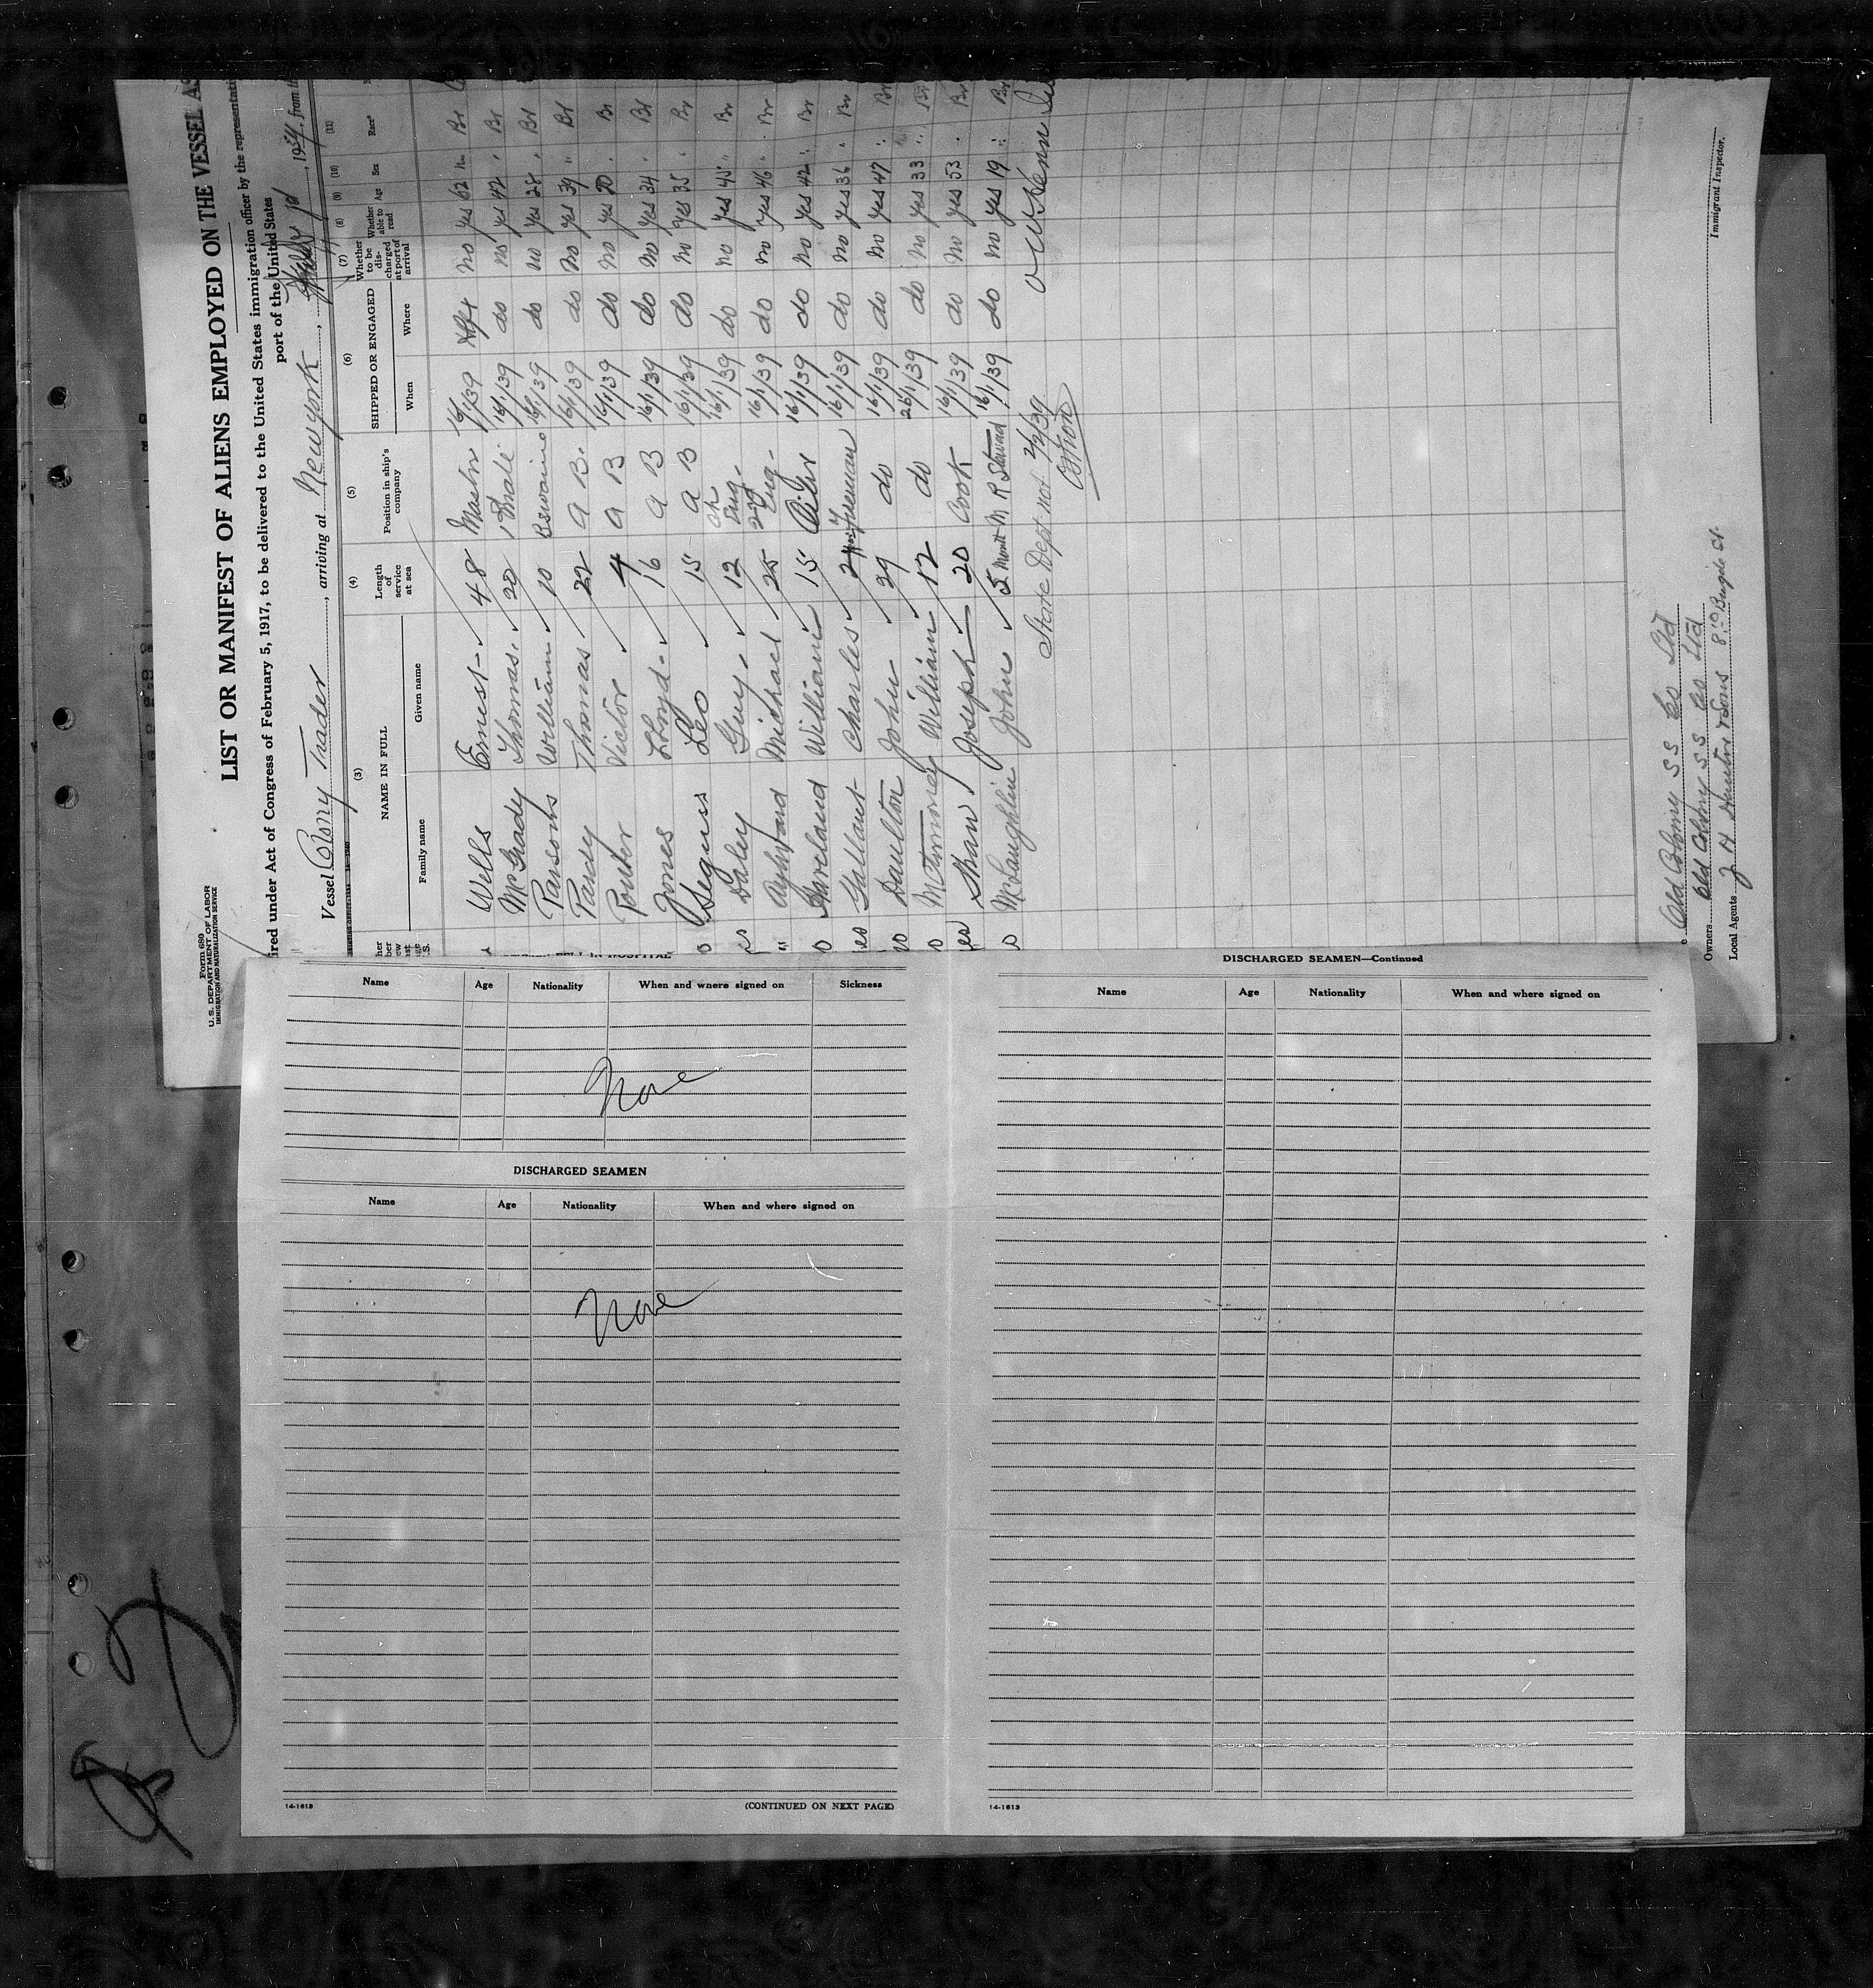 Form 680
U. S. DEPARTMENT OF LABOR
IMMIGRATION AND NATURALIZATION SERVICE
LIST OR MANIFEST OF ALIENS EMPLOYED ON THE VESSEL AS
ired under Act of Congress of February 5, 1917, to be delivered to the United States immigration officer by the representati
port of the United States
Vessel Colony Trader, arriving at New York, 19 , from th
(3) (4) (5) (6) (7) (8) (9) (10) (11)
NAME IN FULL Length of service at sea Position in ship's company SHIPPED OR ENGAGED Whether to be discharged at port of arrival Whether able to read Age Sex Race*
Family name Given name When Where
Wells Ernest 48 Master 16/1/39 no yes 62 Br
McGrady Thomas 20 1 Mate 16/1/39 do no yes 42 Br
Parsons William 10 Bswain 16/1/39 do no yes 28 Br
Pardy Thomas 22 A B. 16/1/39 do no yes 39 Br
Porter Victor 4 A B 16/1/39 do no yes 20 Br
Jones LLoyd 16 A B 16/1/39 do no yes 34 Br
Seguis Leo 15 A B 16/1/39 do no yes 35 Br
Daley Guy 12 Ch Eng 16/1/39 do no yes 45 Br
Michael 25 2nd Eng 16/1/39 do no yes 46 Br
Haveland William 15 Oiler 16/1/39 do no yes 42 Br
Gallant Charles Fireman 16/1/39 do no yes 36 Br
Daulton John 29 do 16/1/39 do no yes 47 Br
William 12 do 26/1/39 do no yes 33 Br
Shaw Joseph 20 Cook 16/1/39 do no yes 53 Br
McLaughlin John 5 Month M R Steward 16/1/39 do no yes 19 Br
State Dept. not 2/2/39
Old Colony S S Co Ltd
Owners Old Colony S.S. Co Ltd
Local Agents J H & Sons
Immigrant Inspector.
Name Age Nationality When and where signed on Sickness
None
DISCHARGED SEAMEN
Name Age Nationality When and where signed on
None
14-1613 (CONTINUED ON NEXT PAGE)
DISCHARGED SEAMEN—Continued
Name Age Nationality When and where signed on
14-1613